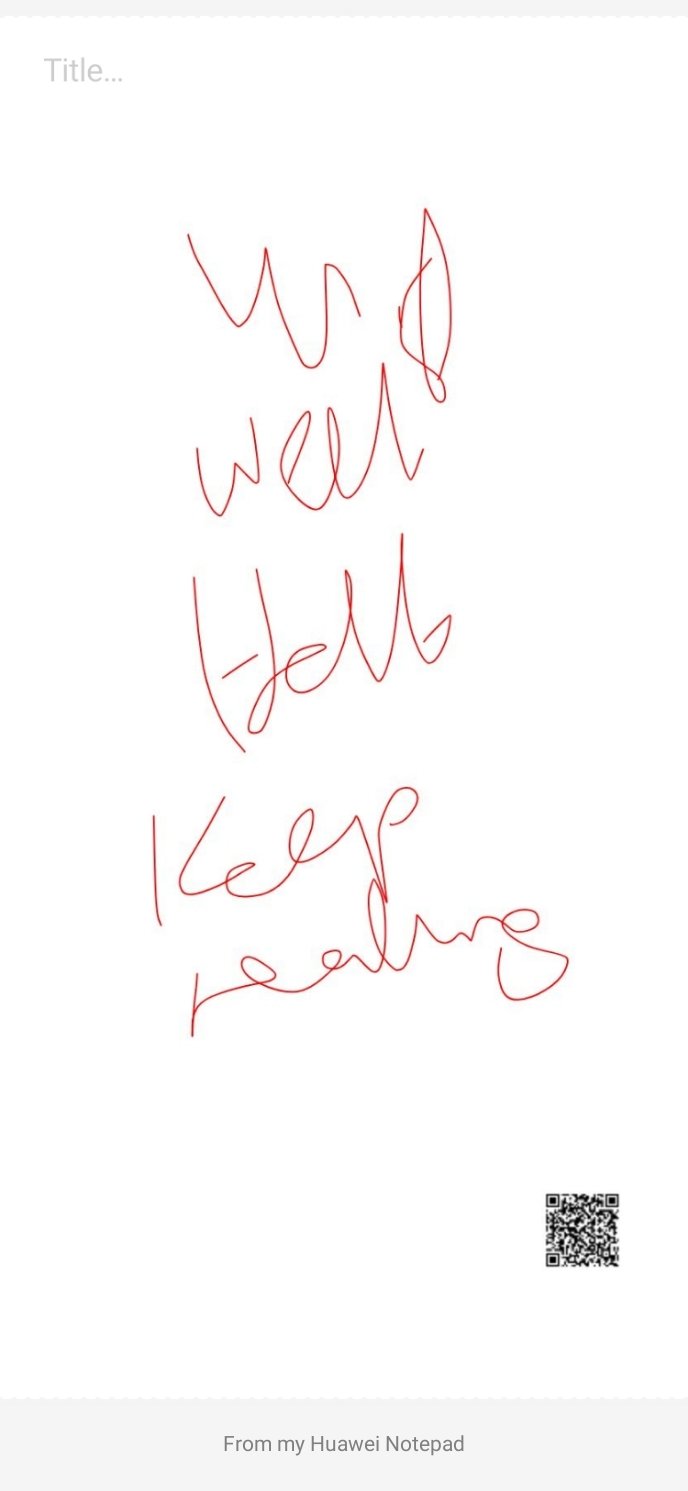 Title...
well
Hello
Keep
reading
From my Huawei Notepad